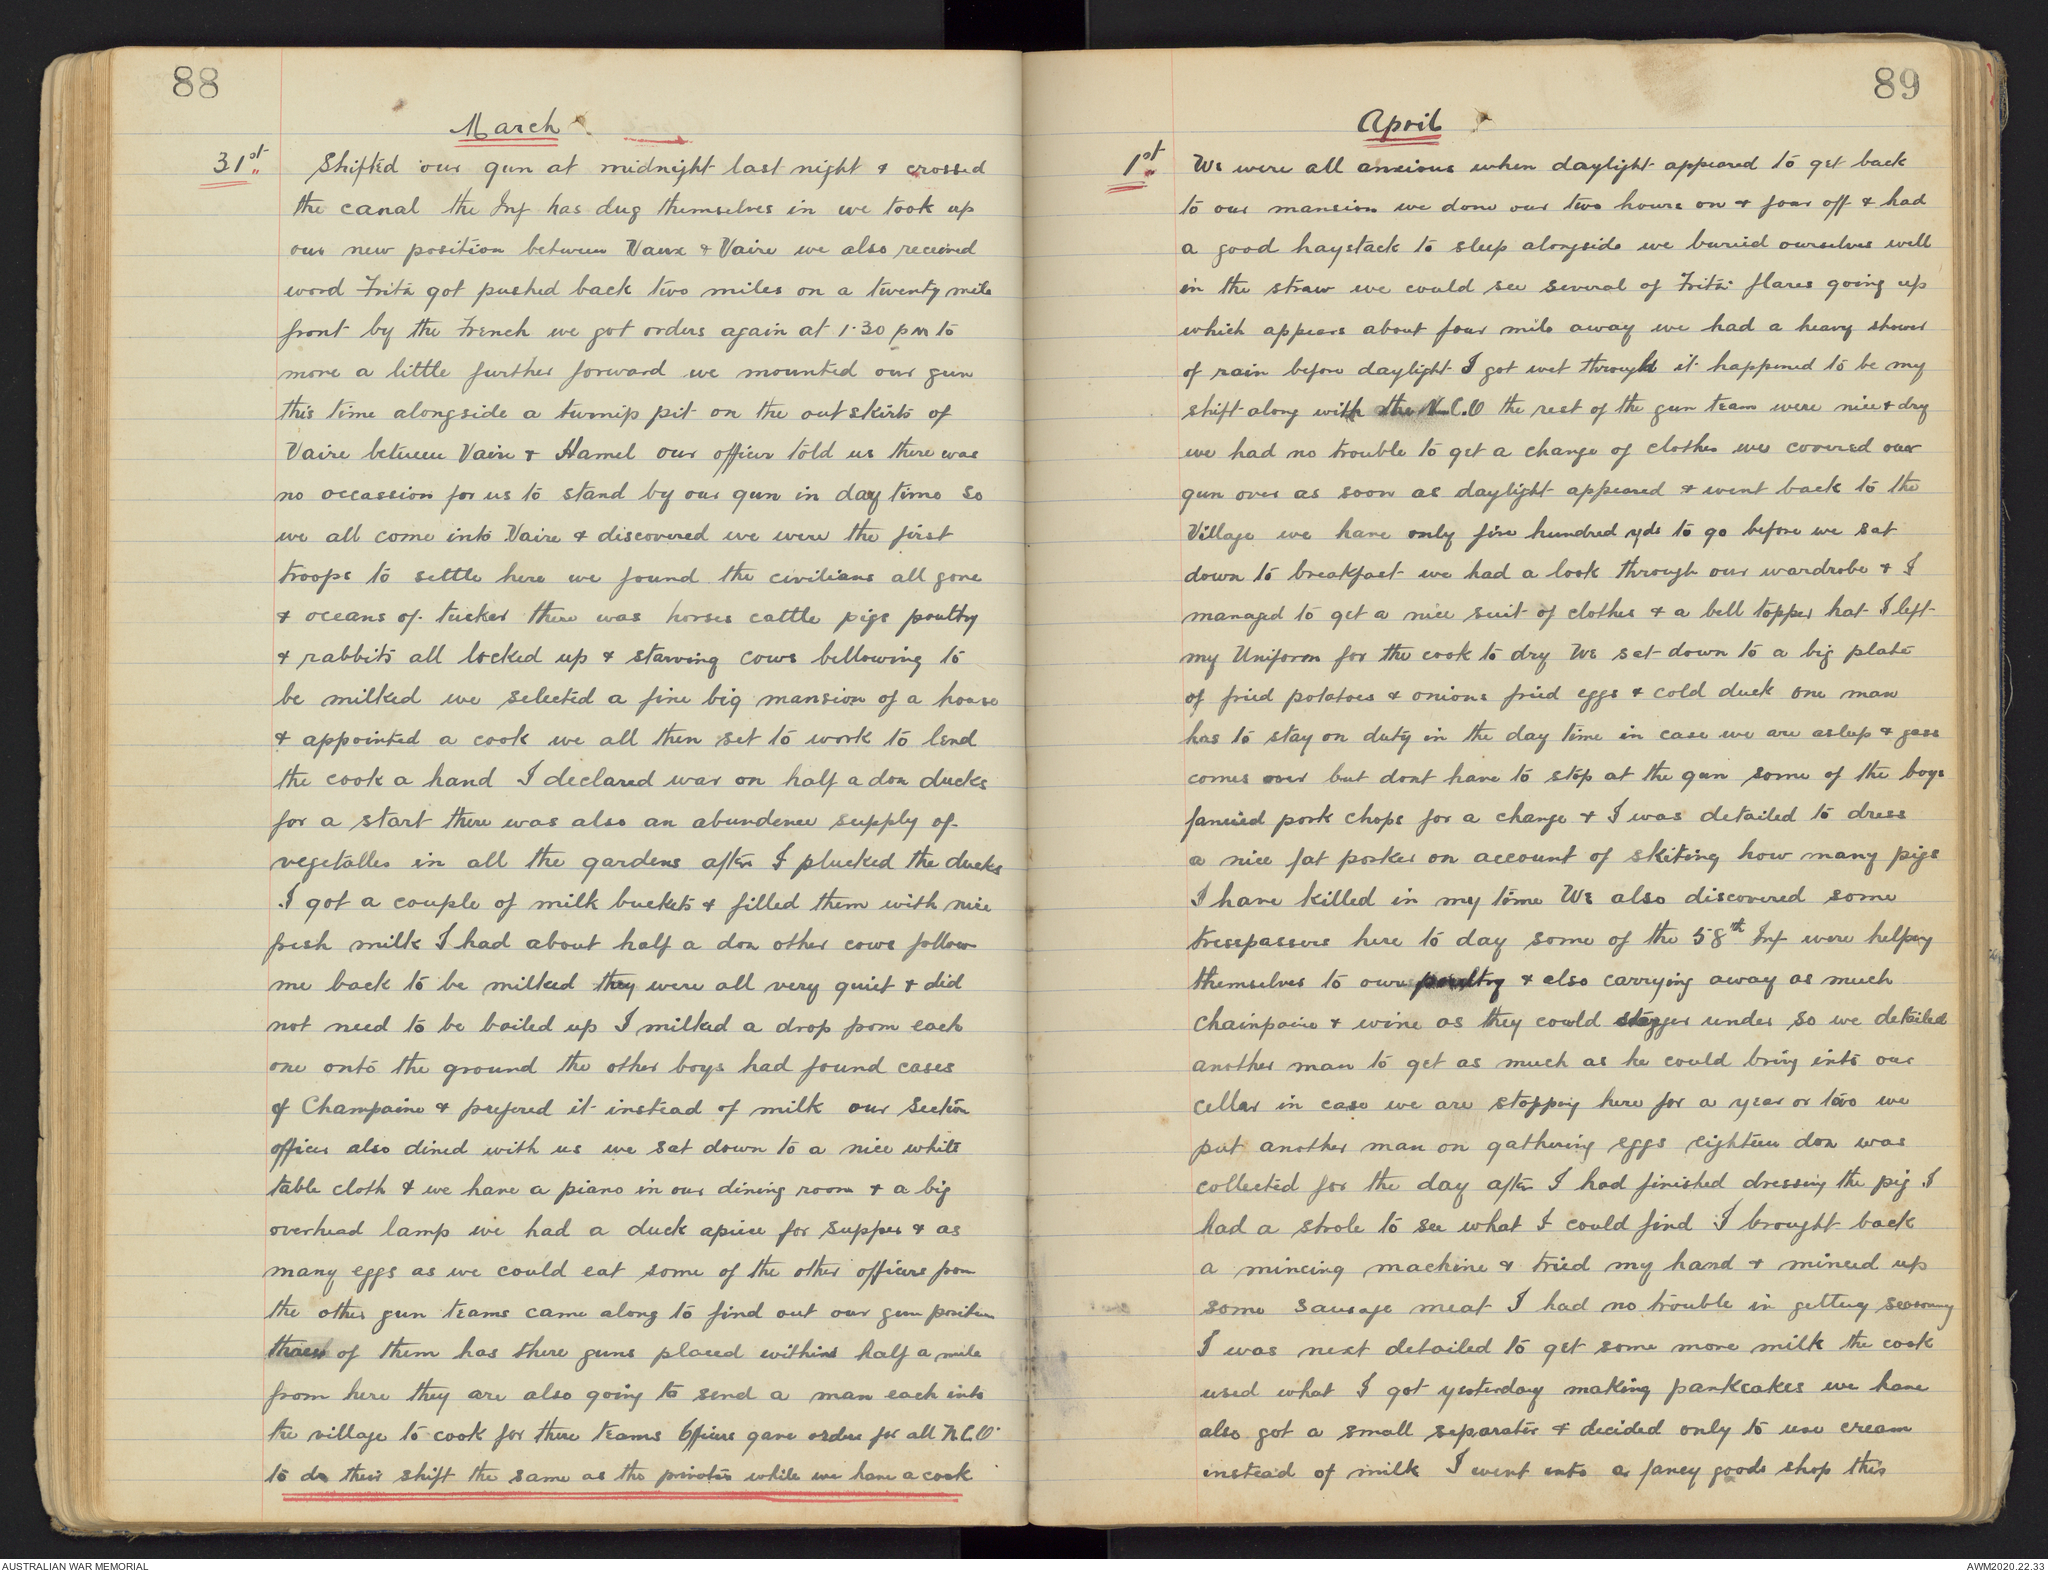 88
March
31st Shifted our gun at midnight last night & crossed
the canal the Inf has dug themselves in we took up
our new position between Vaux & Vaire we also received
word Fritz got pushed back two miles on a twenty mile
front by the French we got orders again at 1.30 pm to
move a little further forward we mounted our gun
this time alongside a turnip pit on the outskirts of
Vaire between Vaire & Hamel our officer told us there was
no occassion for us to stand by our gun in day time so
we all come into Vaire & discovered we were the first
troops to settle here we found the civilians all gone
& oceans of tucker there was horses cattle pigs poultry
& rabbits all locked up & starving cows bellowing to
be milked we selected a fine big mansion of a house
& appointed a cook we all then set to work to lend
the cook a hand I declared war on half a doz ducks
for a start there was also an abundence supply of
vegetables in all the gardens after I plucked the ducks
I got a couple of milk buckets & filled them with nice
fresh milk I had about half a doz other cows follow
me back to be milked they were all very quiet & did
not need to be bailed up I milked a drop from each
one onto the ground the other boys had found cases
of Champaine & prefered it instead of milk our Section
officer also dined with us we sat down to a nice white
table cloth & we have a piano in our dining room & a big
overhead lamp we had a duck apiece for supper & as
many eggs as we could eat some of the other officers from
the other gun teams came along to find out our gun position
three of them has there guns placed within half a mile
from here they are also going to send a man each into
the village to cook for there teams Officers gave orders for all N.C.O'
to do their shift the same as the privates while we have a cook
89
April
1st We were all anxious when daylight appeared to get back
to our mansion we done our two hours on & four off & had
a good haystack to sleep alongside we buried ourselves well
in the straw we could see several of Fritz flares going up
which appears about four mile away we had a heavy shower
of rain before daylight I got wet through it happened to be my
shift along with the N.C.O the rest of the gun team were nice & dry
we had no trouble to get a change of clothes we covered our
gun over as soon as daylight appeared & went back to the
Village we have only five hundred yds to go before we sat
down to breakfast we had a look through our wardrobe & I
managed to get a nice suit of clothes & a bell topper hat I left
my Uniform for the cook to dry We sat down to a big plate
of fried potatoes & onions fried eggs & cold duck one man
has to stay on duty in the day time in case we are asleep & gass
comes over but dont have to stop at the gun some of the boys
fancied pork chops for a change & I was detailed to dress
a nice fat porker on account of skiting how many pigs
I have killed in my time We also discovered some
tresspassers here to day some of the 58th Inf were helping
themselves to our poultry & also carrying away as much
Chainpaine & wine as they could stagger under so we detailed
another man to get as much as he could bring into our
cellar in case we are stopping here for a year or two we
put another man on gathering eggs eighteen doz was
collected for the day after I had finished dressing the pig I
had a strole to see what I could find I brought back
a mincing machine & tried my hand & minced up
some sausage meat I had no trouble in getting seasoning
I was next detailed to get some more milk the cook
used what I got yesterday making pankcakes we have
also got a small separator & decided only to use cream
instead of milk I went into a fancy goods shop this
AUSTRALIAN WAR MEMORIAL
AWM2020.22.33